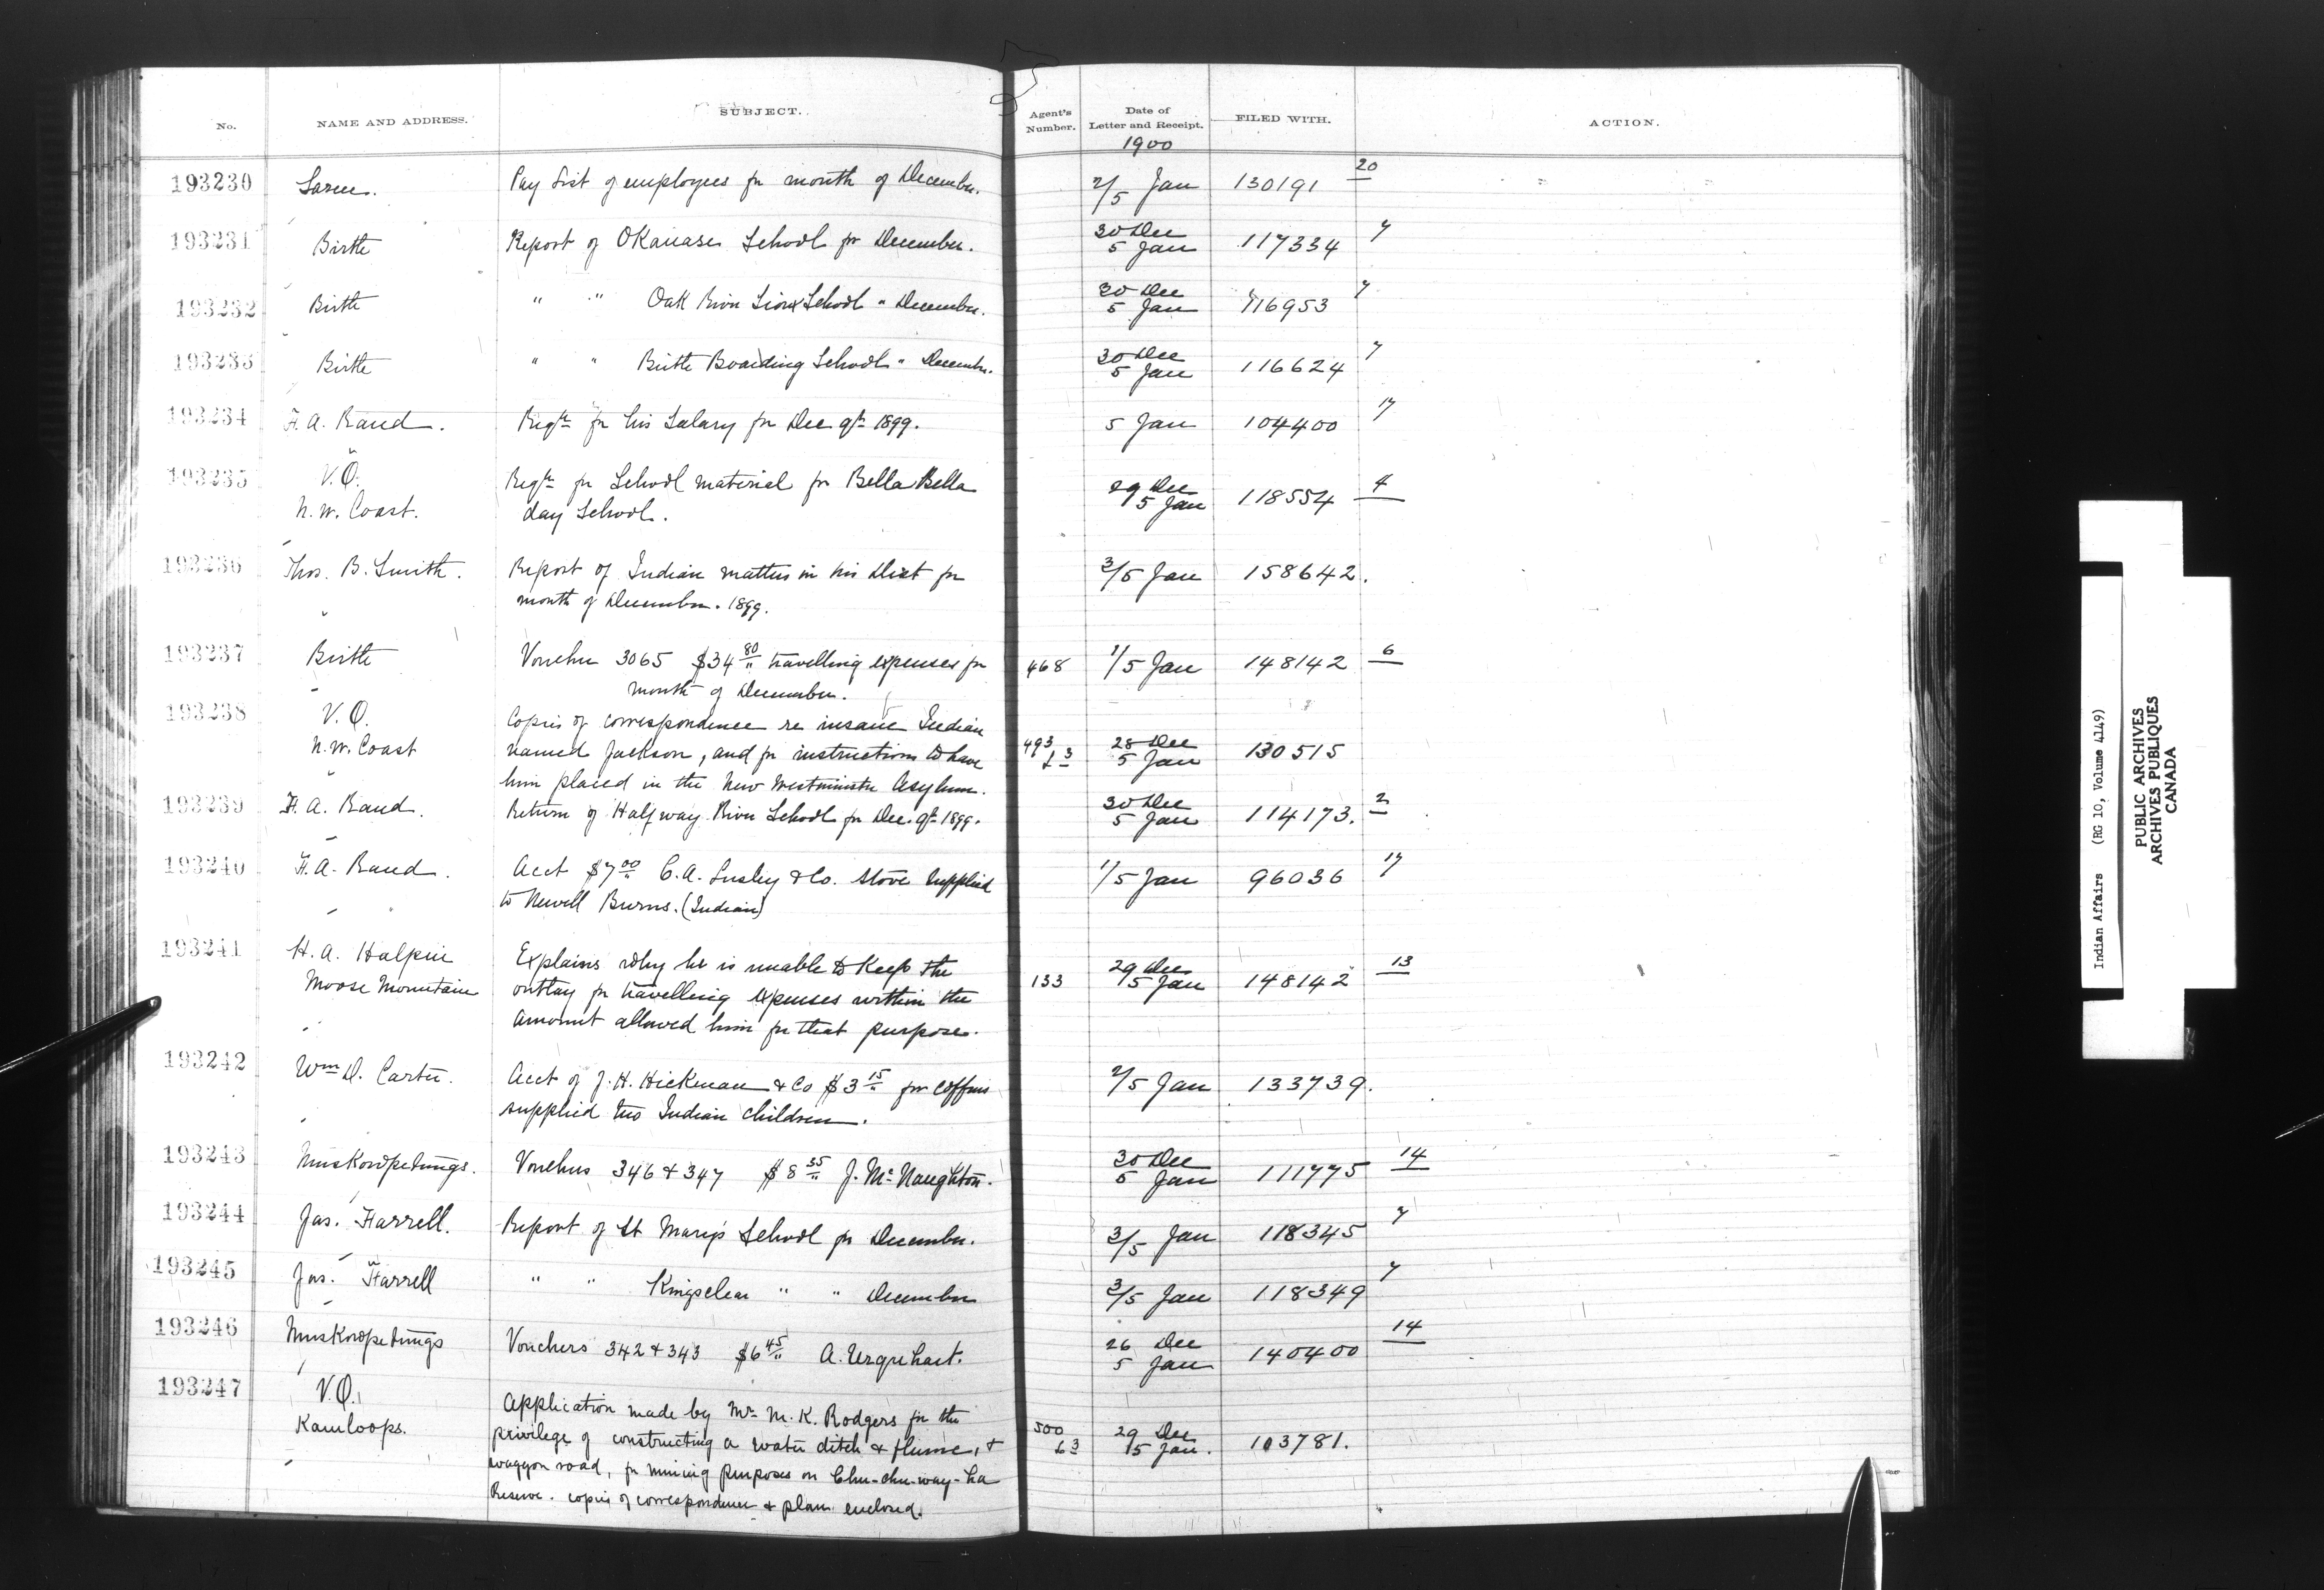 No. NAME AND ADDRESS. SUBJECT. Agent's Number. Date of Letter and Receipt. FILED WITH. ACTION.
1900
193230 Sarcee. Pay List of employees for month of December. 2/5 Jan 130191 20
193231 Birtle Report of Okanase School for December. 30 Dec 5 Jan 117334 7
193232 Birtle " " Oak River Sioux School " December. 30 Dec 5 Jan 116953 7
193233 Birtle " " Birtle Boarding School " December. 30 Dec 5 Jan 116624 7
193234 F. A. Rand. Reqtn for his Salary for Dec qr 1899. 5 Jan 104400 17
193235 V.O. Reqtn for School material for Bella Bella 29 Dec 5 Jan 118554 4
N.W. Coast. day School.
193236 Thos. B. Smith. Report of Indian matters in his Dist for 3/5 Jan 158642.
month of December. 1899.
193237 Birtle Voucher 3065 $34 80 travelling expenses for 468 1/5 Jan 148142 6
month of December.
193238 V.O. Copies of correspondence re insane Indian
N.W. Coast named Jackson, and for instructions to have 493 13 28 Dec 5 Jan 130515
him placed in the New Westminster Asylum.
193239 F. A. Rand. Return of Halfway River School for Dec. qr 1899. 30 Dec 5 Jan 114173. 2
193240 F. A. Rand. Acct $7 00 C. A. Lusby & Co. stove supplied 1/5 Jan 96036 17
to Newell Burns. (Indian)
193241 H. A. Halpin Explains why he is unable to Keep the
Moose Mountain outlay for travelling expenses within the 133 29 Dec 5 Jan 148142 13
amount allowed him for that purpose.
193242 Wm D. Carter. Acct of J. H. Hickman & Co $3 15 for coffins 2/5 Jan 133739.
supplied two Indian children.
193243 Muskowpetungs. Vouchers 346 & 347 $8 35 J. McNaughton. 30 Dec 5 Jan 111775 14
193244 Jas. Farrell. Report of St Mary's School for December. 3/5 Jan 118345 7
193245 Jas. Farrell " " Kingsclear " " December 3/5 Jan 118349 7
193246 Muskowpetungs Vouchers 342 & 343 $6 45 A. Urquhart. 26 Dec 5 Jan 140400 14
193247 V.O. Application made by Mr M. K. Rodgers for the
Kamloops. privilege of constructing a water ditch & flume, & 500 63 29 Dec 5 Jan. 103781.
waggon road, for mining purposes on Chu-chu-way-ha
Reserve. copies of correspondence & plan enclosed.
Indian Affairs (RG 10, Volume 4149)
PUBLIC ARCHIVES
ARCHIVES PUBLIQUES
CANADA